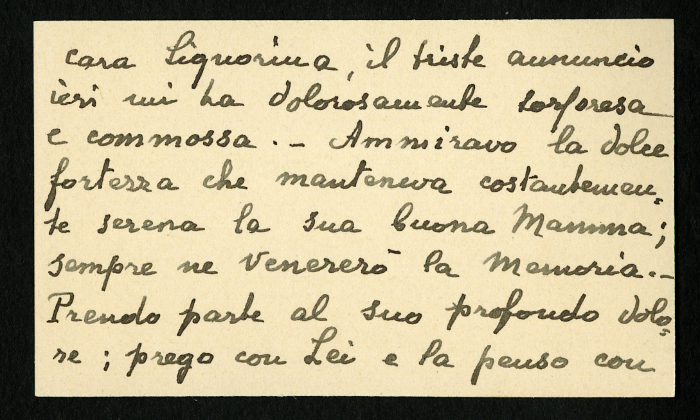 cara Signorina, il triste annuncio
ieri mi ha dolorosamente sorpresa
e commossa. - Ammiravo la dolce
fortezza che manteneva costantemen-
te serena la sua buona Mamma;
sempre ne venererò la memoria. -
Prendo parte al suo profondo dolo-
re; prego con Lei e la penso con